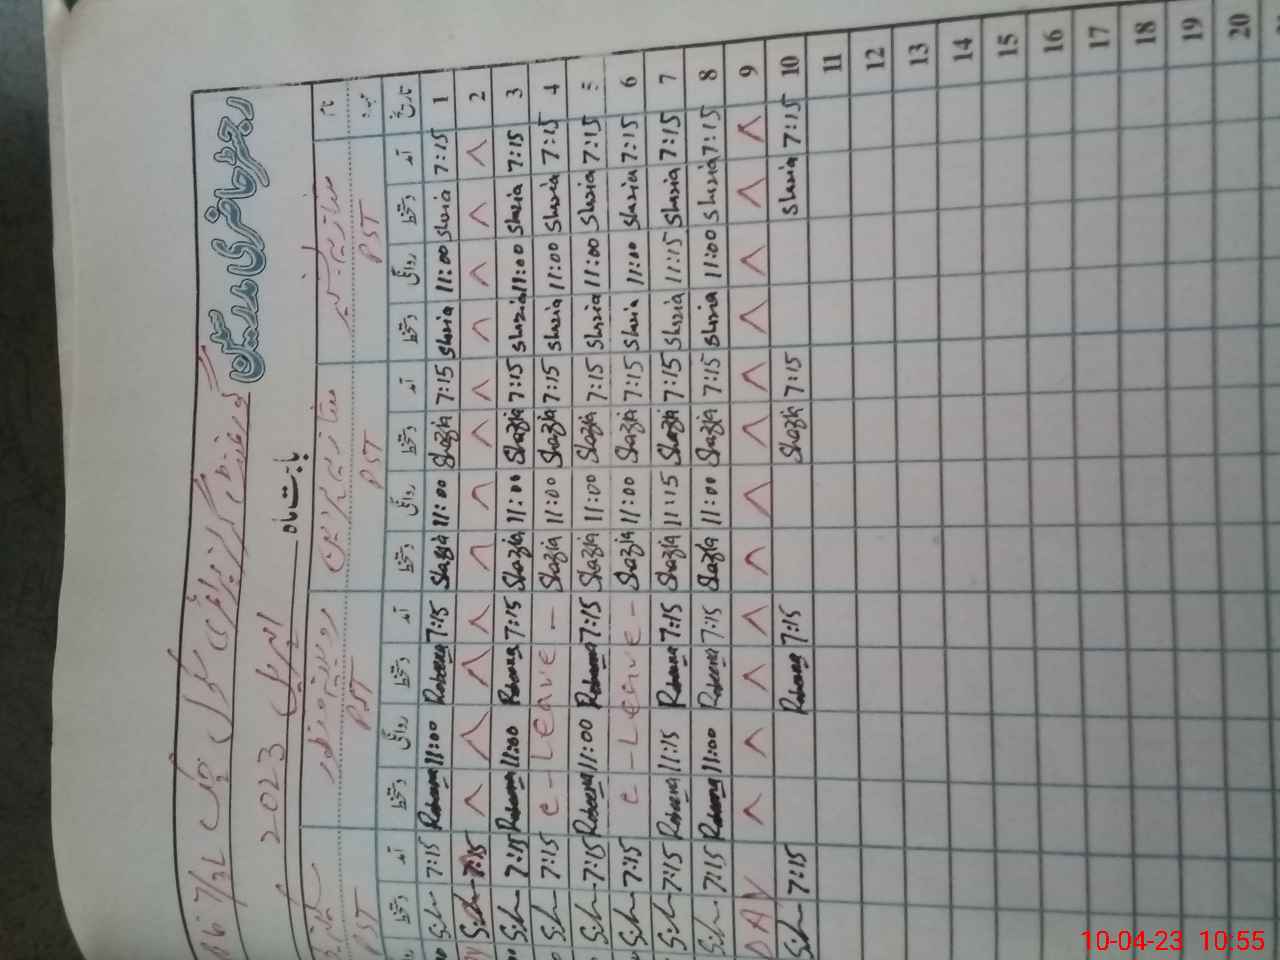 رجسٹر حاضری مدرسین
گورنمنٹ گرلز پرائمری سکول چک
بابت ماہ اپریل 2023
نام
عہدہ PST PST PST PST
تاریخ آمد دستخط روانگی دستخط آمد دستخط روانگی دستخط آمد دستخط روانگی دستخط آمد دستخط
1 7:15 Shzia 11:00 Shzia 7:15 Shazia 11:00 Shazia 7:15 Rabeena 11:00 Rabeena 7:15
2 7:15
3 7:15 Shzia 11:00 Shzia 7:15 Shazia 11:00 Shazia 7:15 Rabeena 11:00 Rabeena 7:15
4 7:15 Shzia 11:00 Shzia 7:15 Shazia 11:00 Shazia C - Leave - 7:15
7:15 Shzia 11:00 Shzia 7:15 Shazia 11:00 Shazia 7:15 Rabeena 11:00 Rabeena 7:15
6 7:15 Shzia 11:00 Shzia 7:15 Shazia 11:00 Shazia C - Leave - 7:15
7 7:15 Shzia 11:15 Shzia 7:15 Shazia 11:15 Shazia 7:15 Rabeena 11:15 Rabeena 7:15
8 7:15 Shzia 11:00 Shzia 7:15 Shazia 11:00 Shazia 7:15 Rabeena 11:00 Rabeena 7:15
9 DAY
10 7:15 Shzia 7:15 Shazia 7:15 Rabeena 7:15
11
12
13
14
15
16
17
18
19
20
10-04-23 10:55